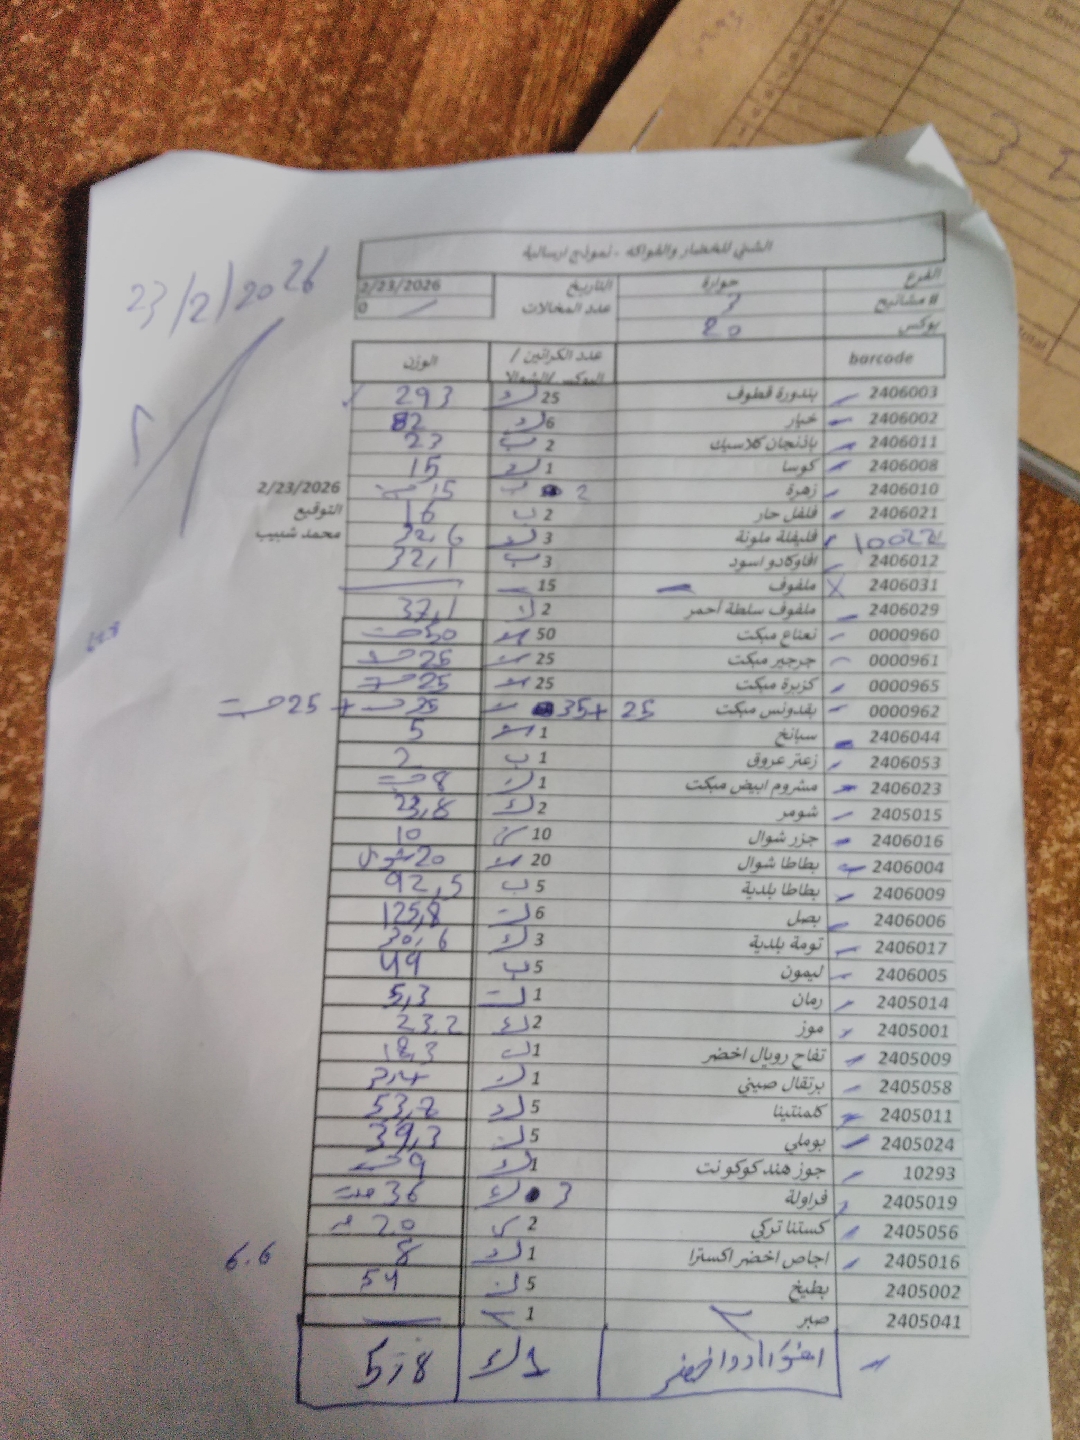 الشني للخضار والفواكه - نموذج ارسالية
الفرع حوارة التاريخ 2/23/2026
# مشاتيح 3 عدد المخالات 0
بوكس 20
23/2/2026
barcode عدد الكراتين / البوكس /الشوالا الوزن
2406003 بندورة قطوف 25 ك 293
2406002 خيار 6 ك 82
2406011 باذنجان كلاسيك 2 ب 23
2406008 كوسا 1 ك 15
2406010 زهرة 2 ب 15 حبة 2/23/2026
2406021 فلفل حار 2 ب 16 التوقيع
100221 فليفلة ملونة 3 ك 32,6 محمد شبيب
2406012 افاوكادو اسود 3 ب 32,1
2406031 ملفوف 15
2406029 ملفوف سلطة أحمر 2 ك 37,1
0000960 نعناع مبكت 50 50 حبة
0000961 جرجير مبكت 25 25 حبة
0000965 كزبرة مبكت 25 25 حبة
0000962 بقدونس مبكت 25 +35 25 حبة + 25 حبة
2406044 سبانخ 1 5
2406053 زعتر عروق 1 ب 2
2406023 مشروم ابيض مبكت 1 ك 8 حبة
2405015 شومر 2 ك 23,8
2406016 جزر شوال 10 10
2406004 بطاطا شوال 20 20 شوال
2406009 بطاطا بلدية 5 ب 92,5
2406006 بصل 6 ب 125,8
2406017 تومة بلدية 3 ك 30,6
2406005 ليمون 5 ب 49
2405014 رمان 1 ب 5,3
2405001 موز 2 ك 23.2
2405009 تفاح رويال اخضر 1 ك 18,3
2405058 برتقال صيني 1 ك
2405011 كلمنتينا 5 ك 53,2
2405024 بوملي 5 ك 39,3
10293 جوز هند كوكونت 1 ك 9 حبة
2405019 فراولة 3 ك 36 حبة
2405056 كستنا تركي 2 ك 20
2405016 اجاص اخضر اكسترا 1 ك 8 6.6
2405002 بطيخ 5 ك 54
2405041 صبر 1
افوكادو اخضر 1 ك 5,8